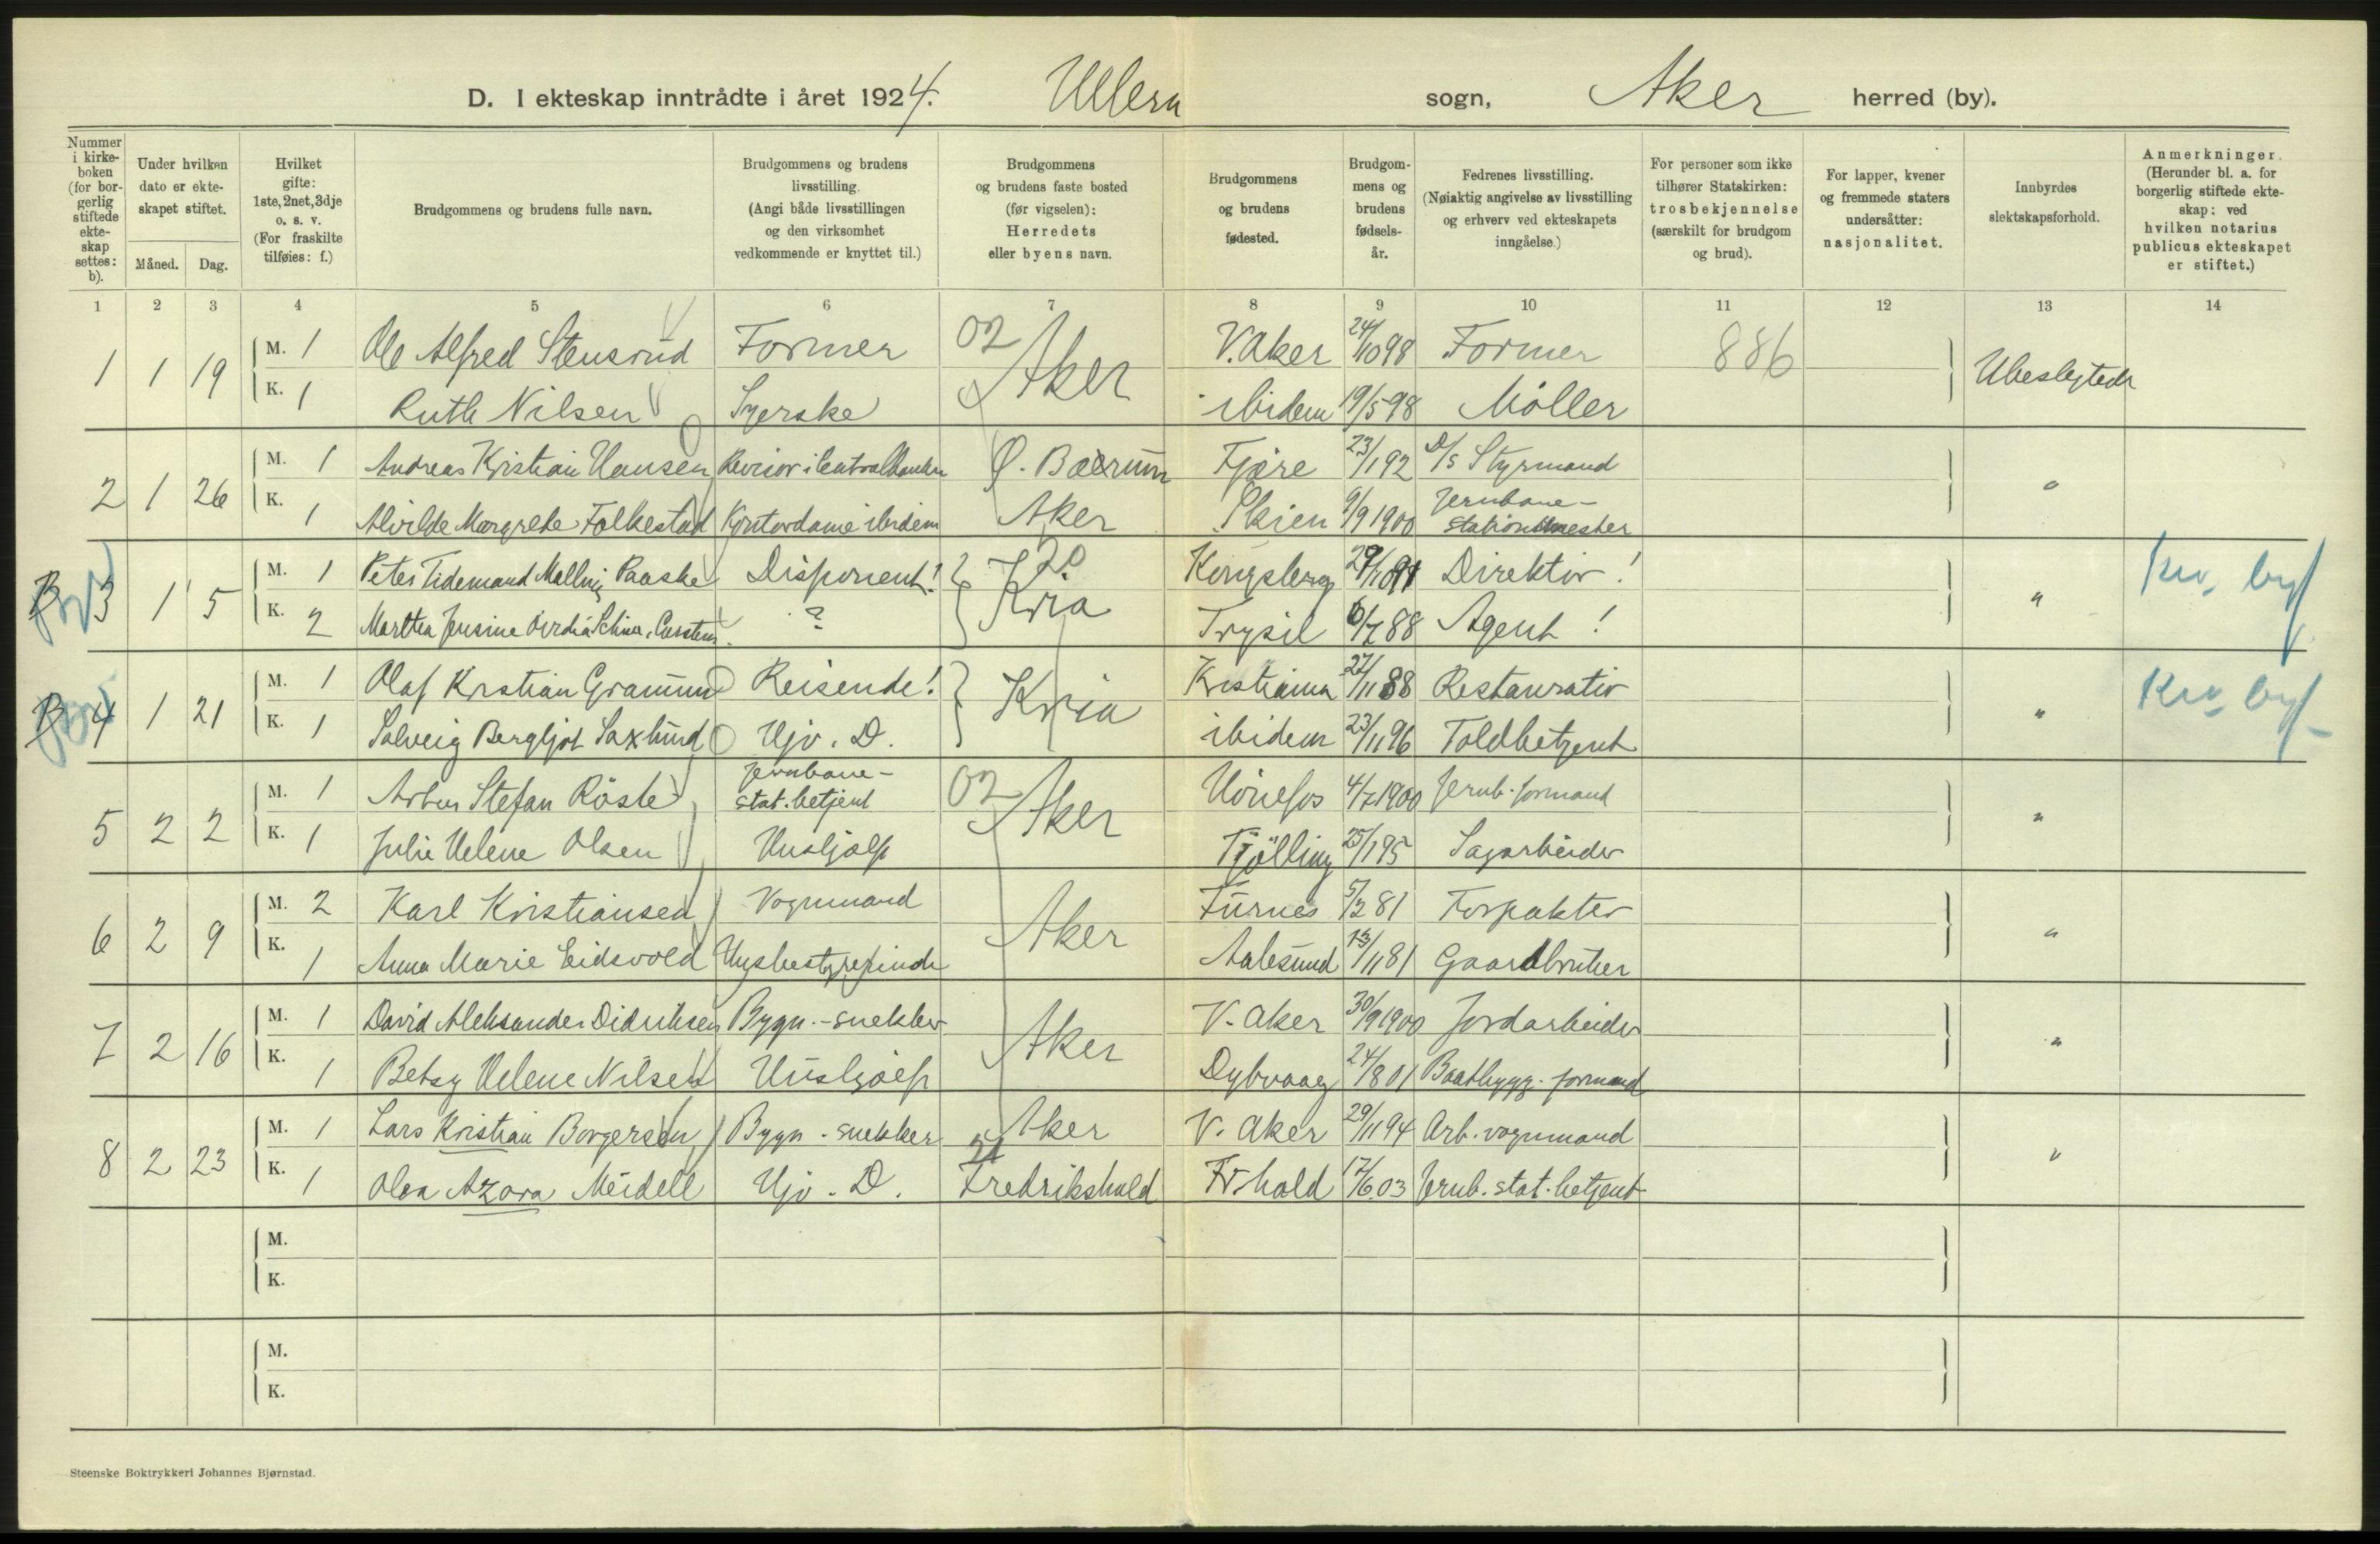 D. I ekteskap inntrådte i året 1924. Ullern sogn, Aker herred (by).
Nummer i kirke-boken (for bor-gerlig stiftede ekte-skap settes: b).
Under hvilken dato er ekte-skapet stiftet.
Måned. Dag.
Hvilket gifte: 1ste, 2net, 3dje o. s. v. (For fraskilte tilføies: f.)
Brudgommens og brudens fulle navn.
Brudgommens og brudens livsstilling. (Angi både livsstillingen og den virksomhet vedkommende er knyttet til.)
Brudgommens og brudens faste bosted (før vigselen): Herredets eller byens navn.
Brudgommens og brudens fødested.
Brudgom-mens og brudens fødsels-år.
Fedrenes livsstilling. (Nøiaktig angivelse av livsstilling og erhverv ved ekteskapets inngåelse.)
For personer som ikke tilhører Statskirken: trosbekjennelse (særskilt for brudgom og brud).
For lapper, kvener og fremmede staters undersåtter: nasjonalitet.
Innbyrdes slektskapsforhold.
Anmerkninger. (Herunder bl. a. for borgerlig stiftede ekte-skap: ved hvilken notarius publicus ekteskapet er stiftet.)
1 2 3 4 5 6 7 8 9 10 11 12 13 14
1 1 19 M. 1 Ole Alfred Stensrud Former 02 Aker V. Aker 24/10 98 Former 886 Ubeslegtede
K. 1 Ruth Nilsen Syerske ibidem 19/5 98 Møller
2 1 26 M. 1 Andreas Kristian Hansen Revisor i Centralbanken Ø. Bærum Fjære 23/1 92 D/S Styrmand "
K. 1 Alvilde Margrethe Folkestad Kontordame ibidem Aker Skien 9/9 1900 Jernbane-stationsmester
B 3 1 5 M. 1 Peter Tidemand Malling Paaske Disponent! 20 Kria Kongsberg 29/10 91 Direktør! " Kra byf
K. 2 Marthea Jensine ?  Trysil 6/7 88 Agent !
B 4 1 21 M. 1 Olaf Kristian Gramm Reisende! Kria Kristiania 27/11 88 Restauratør " Kra byf
K. 1 Solveig Bergljot Saxlund Hjv. D. ibidem 23/11 96 Toldbetjent
5 2 2 M. 1 Stefan Røste Jernbane-stat.betjent 02 Aker Hønefos 4/7 1900 Jernb. formand "
K. 1 Julie Helene Olsen Hushjælp Tjølling 25/1 95 Sagarbeider
6 2 9 M. 2 Karl Kristiansen Vognmand Aker Furnes 5/2 81 Forpakter "
K. 1 Anna Marie Eidsvold Husbestyrerinde Aalesund 13/11 81 Gaardbruker
7 2 16 M. 1 David Aleksander Didriksen Bygn.-snekker Aker V. Aker 30/9 1900 Jordarbeider "
K. 1 Betsy Helene Nilsen Hushjælp Dybvaag 24/8 01 Baatbygg. formand
8 2 23 M. 1 Lars Kristian Borgersen Bygn.-snekker Aker V. Aker 29/11 94 Arb. vognmand "
K. 1 Olea Azora Meidell Hjv. D. 21 Fredrikshald Fr.hald 17/6 03 Jernb. stat. betjent
M.
K.
M.
K.
Steenske Boktrykkeri Johannes Bjørnstad.